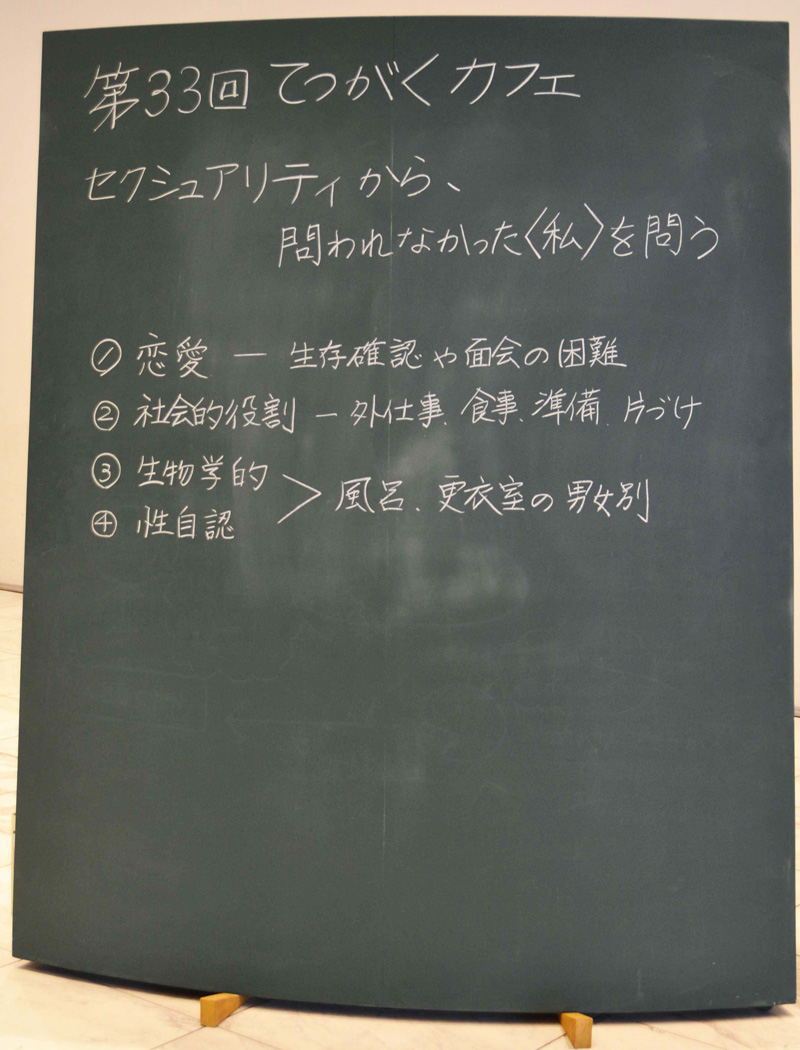 第33回 てつがくカフェ
セクシュアリティから、
問われなかった〈私〉を問う
① 恋愛 ー 生存確認や面会の困難
② 社会的役割 ー 外仕事、食事、準備、片づけ
③ 生物学的
④ 性自認
> 風呂、更衣室の男女別